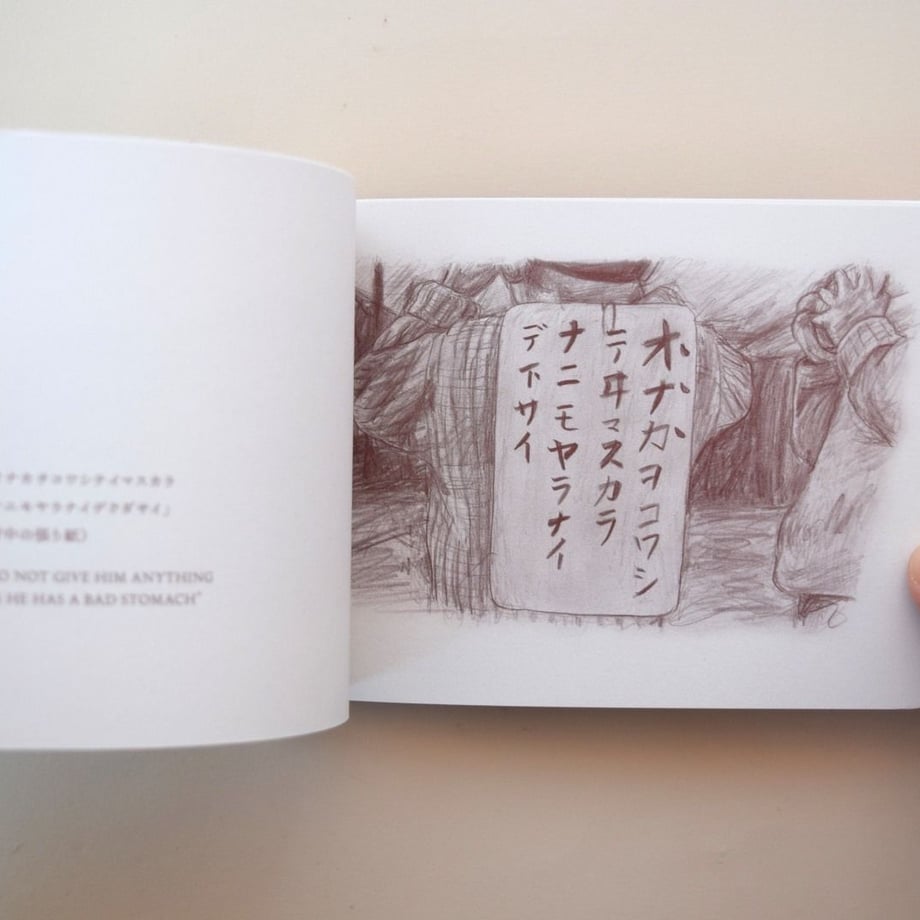 ナカヲコワシテイマスカラ
ニモヤラナイデクダサイ」
中の張り紙)
O NOT GIVE HIM ANYTHING
HE HAS A BAD STOMACH"
オナカヲコワシ
テヰマスカラ
ナニモヤラナイ
デ下サイ